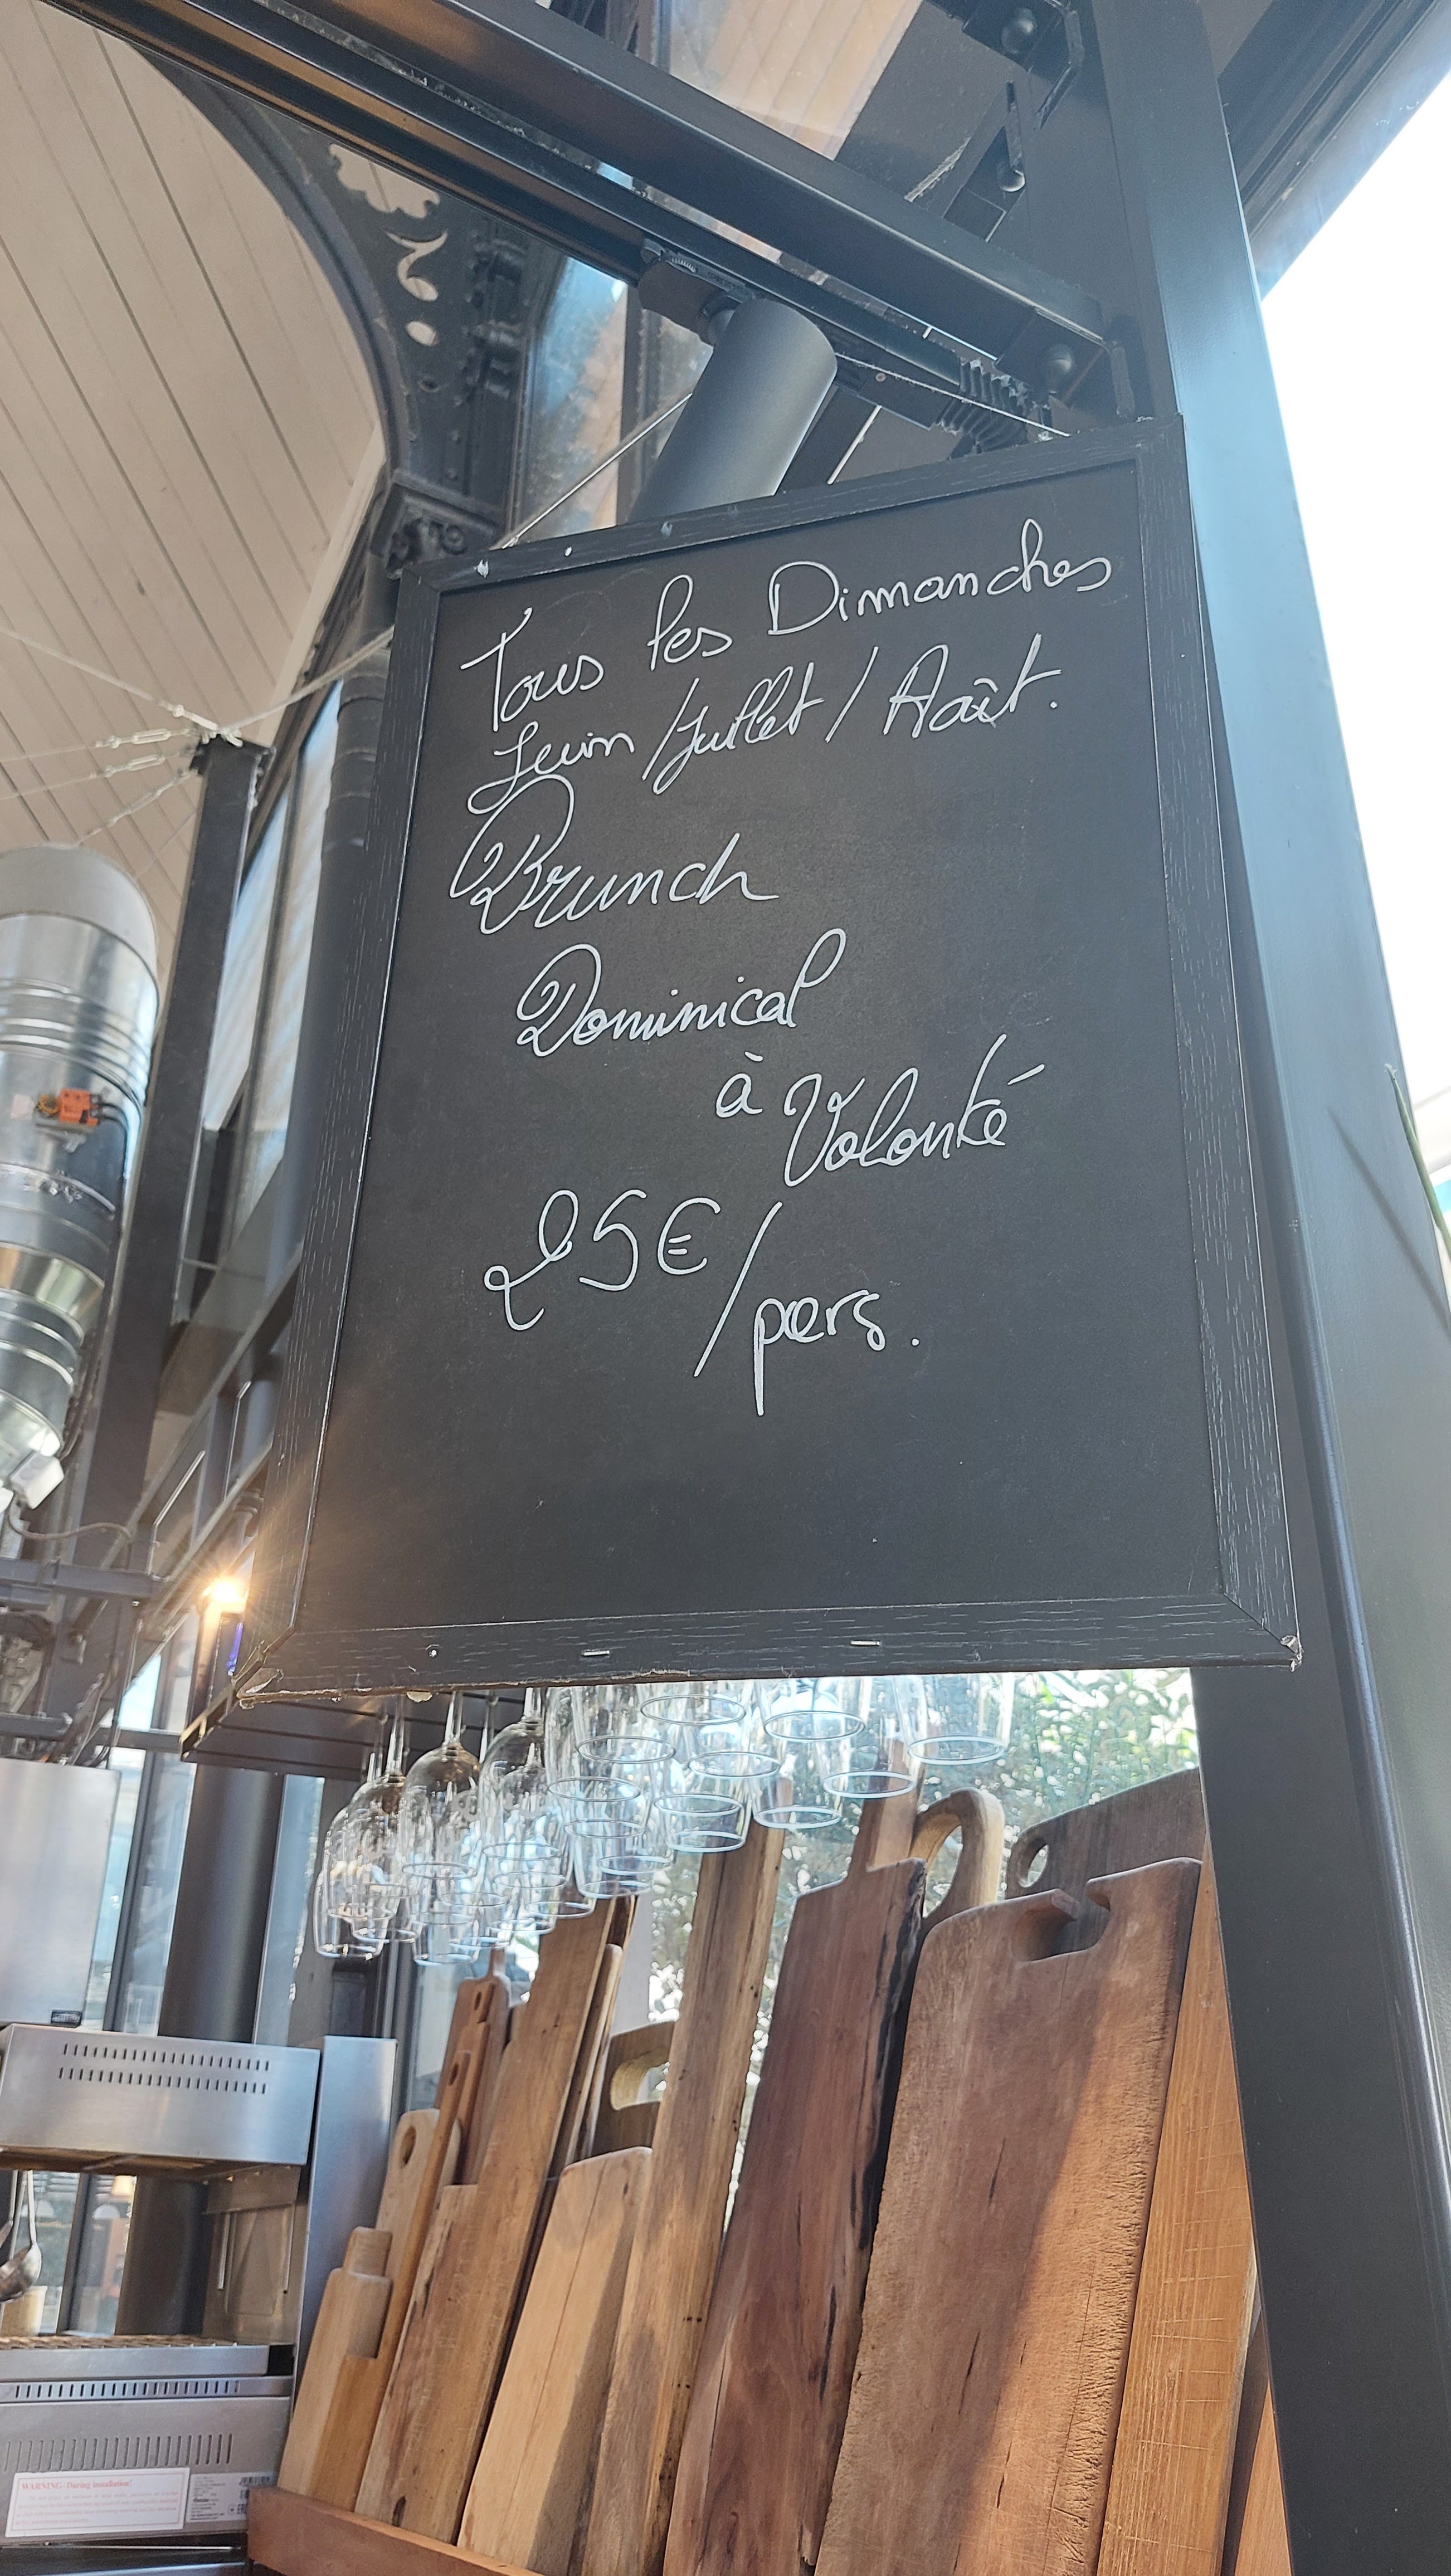 Tous les Dimanches
Juin / Juillet / Août.
Brunch
Dominical
à Volonté
25€
/pers.
WARNING-During installation!